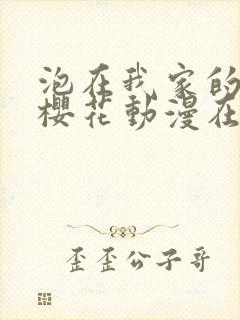 泡在我家的
櫻花動漫在
歪歪公子哥